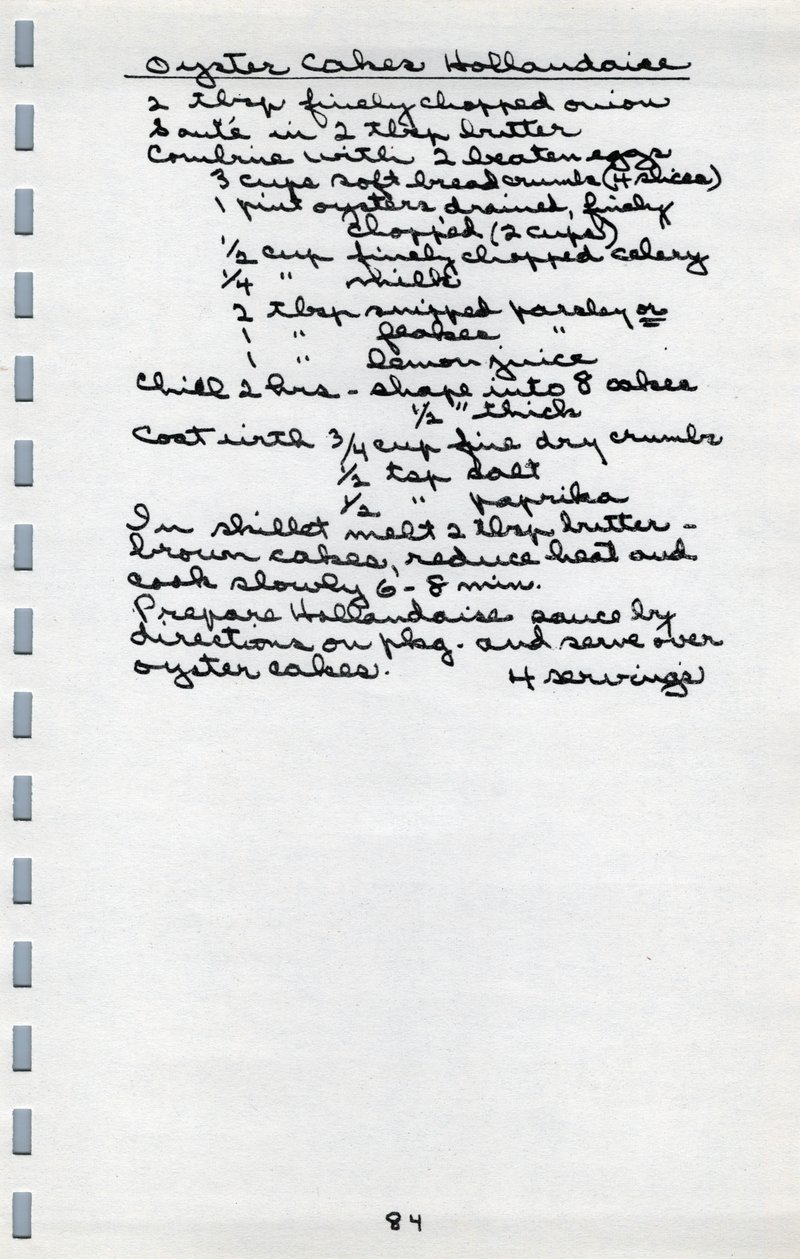 Oyster Cakes Hollandaise
2 tbsp finely chopped onion
Sauté in 2 tbsp butter
Combine with 2 beaten eggs
3 cups soft bread crumbs (4 slices)
1 pint oysters drained, finely
chopped (2 cups)
1/2 cup finely chopped celery
1/4 " milk
2 tbsp snipped parsley or
1 " flakes "
1 " lemon juice
Chill 2 hrs - shape into 8 cakes
1/2 " thick
Coat with 3/4 cup fine dry crumbs
1/2 tsp salt
1/2 " paprika
In skillet melt 2 tbsp butter -
brown cakes, reduce heat and
cook slowly 6 - 8 min.
Prepare Hollandaise sauce by
directions on pkg. and serve over
oyster cakes. 4 servings
84